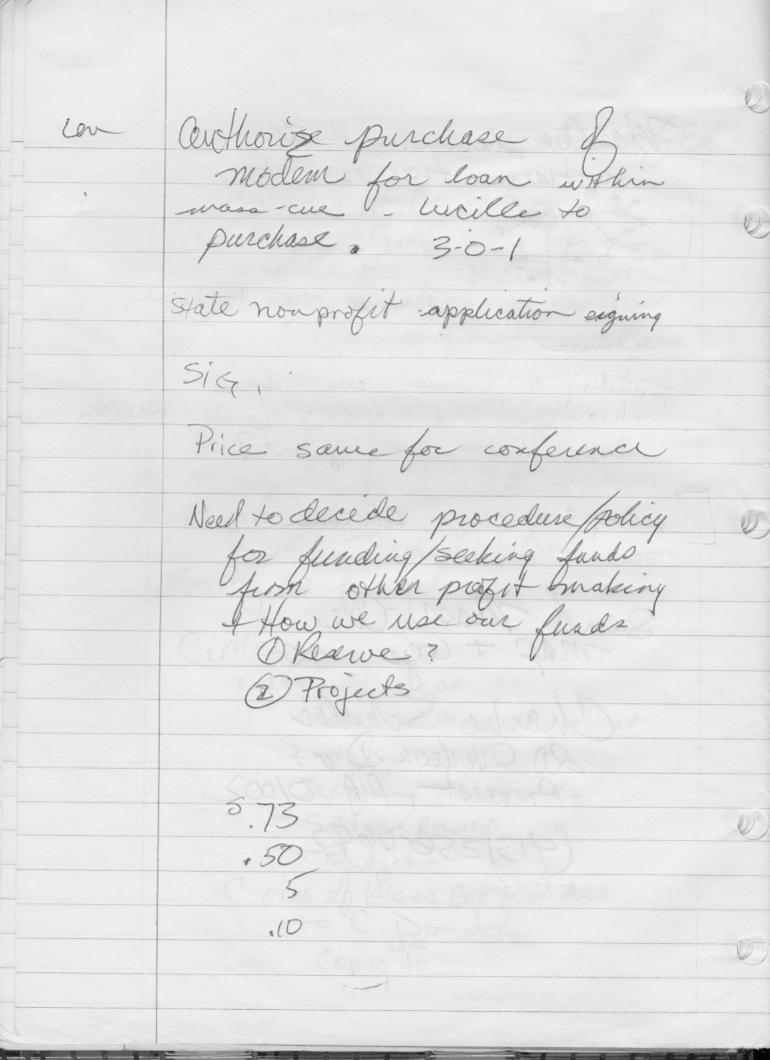 Lou authorize purchase of
modem for loan within
mass-cue - Lucille to
purchase. 3-0-1
State nonprofit application signing
SIG.
Price same for conference
Need to decide procedure/policy
for funding/seeking funds
from other profit making
+ How we use our funds
① Reserve?
② Projects
.73
.50
5
.10